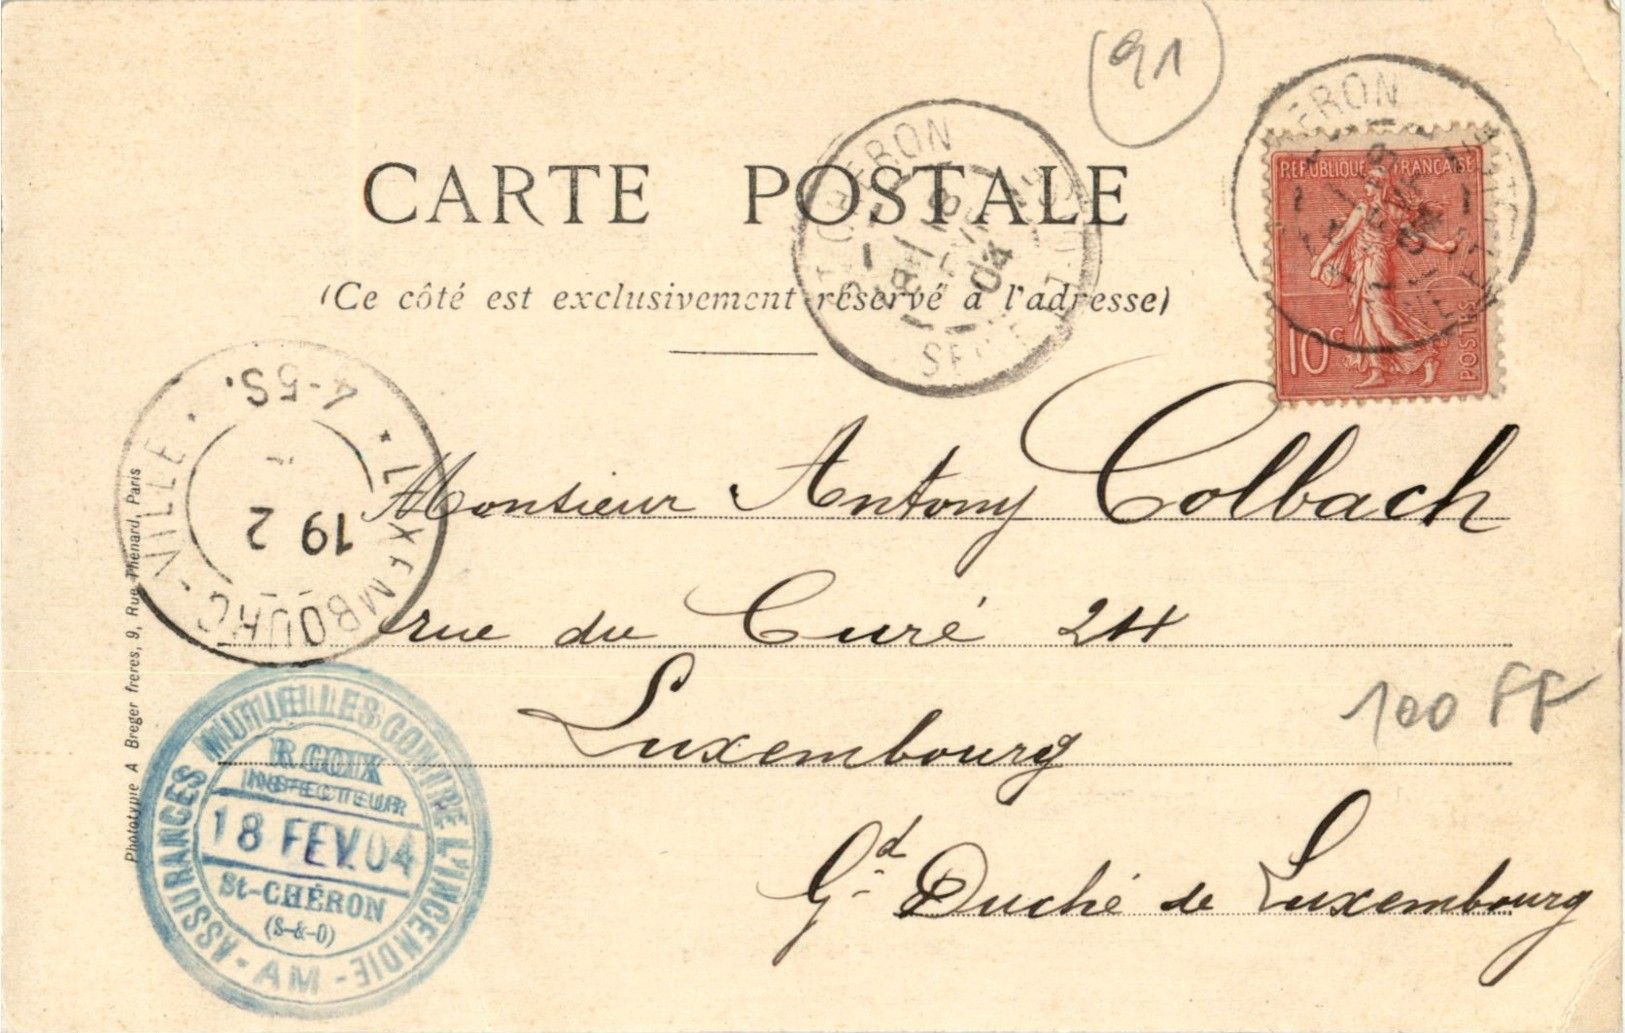 91
CARTE POSTALE
(Ce côté est exclusivement réservé à l'adresse)
ST CHÉRON
18 04
REPUBLIQUE FRANÇAISE
10c
POSTES
LUXEMBOURG-VILLE
4-5S.
19 2
Monsieur Antony Colbach
rue du Curé 24
Luxembourg
Gd Duché de Luxembourg
100 FF
Phototypie A Breger freres, 9, Rue Thenard, Paris
ASSURANCES MUTUELLES CONTRE L'INCENDIE
R. GOIX
INSPECTEUR
18 FEV. 04
St-CHÉRON
(S-&-O)
- AM -